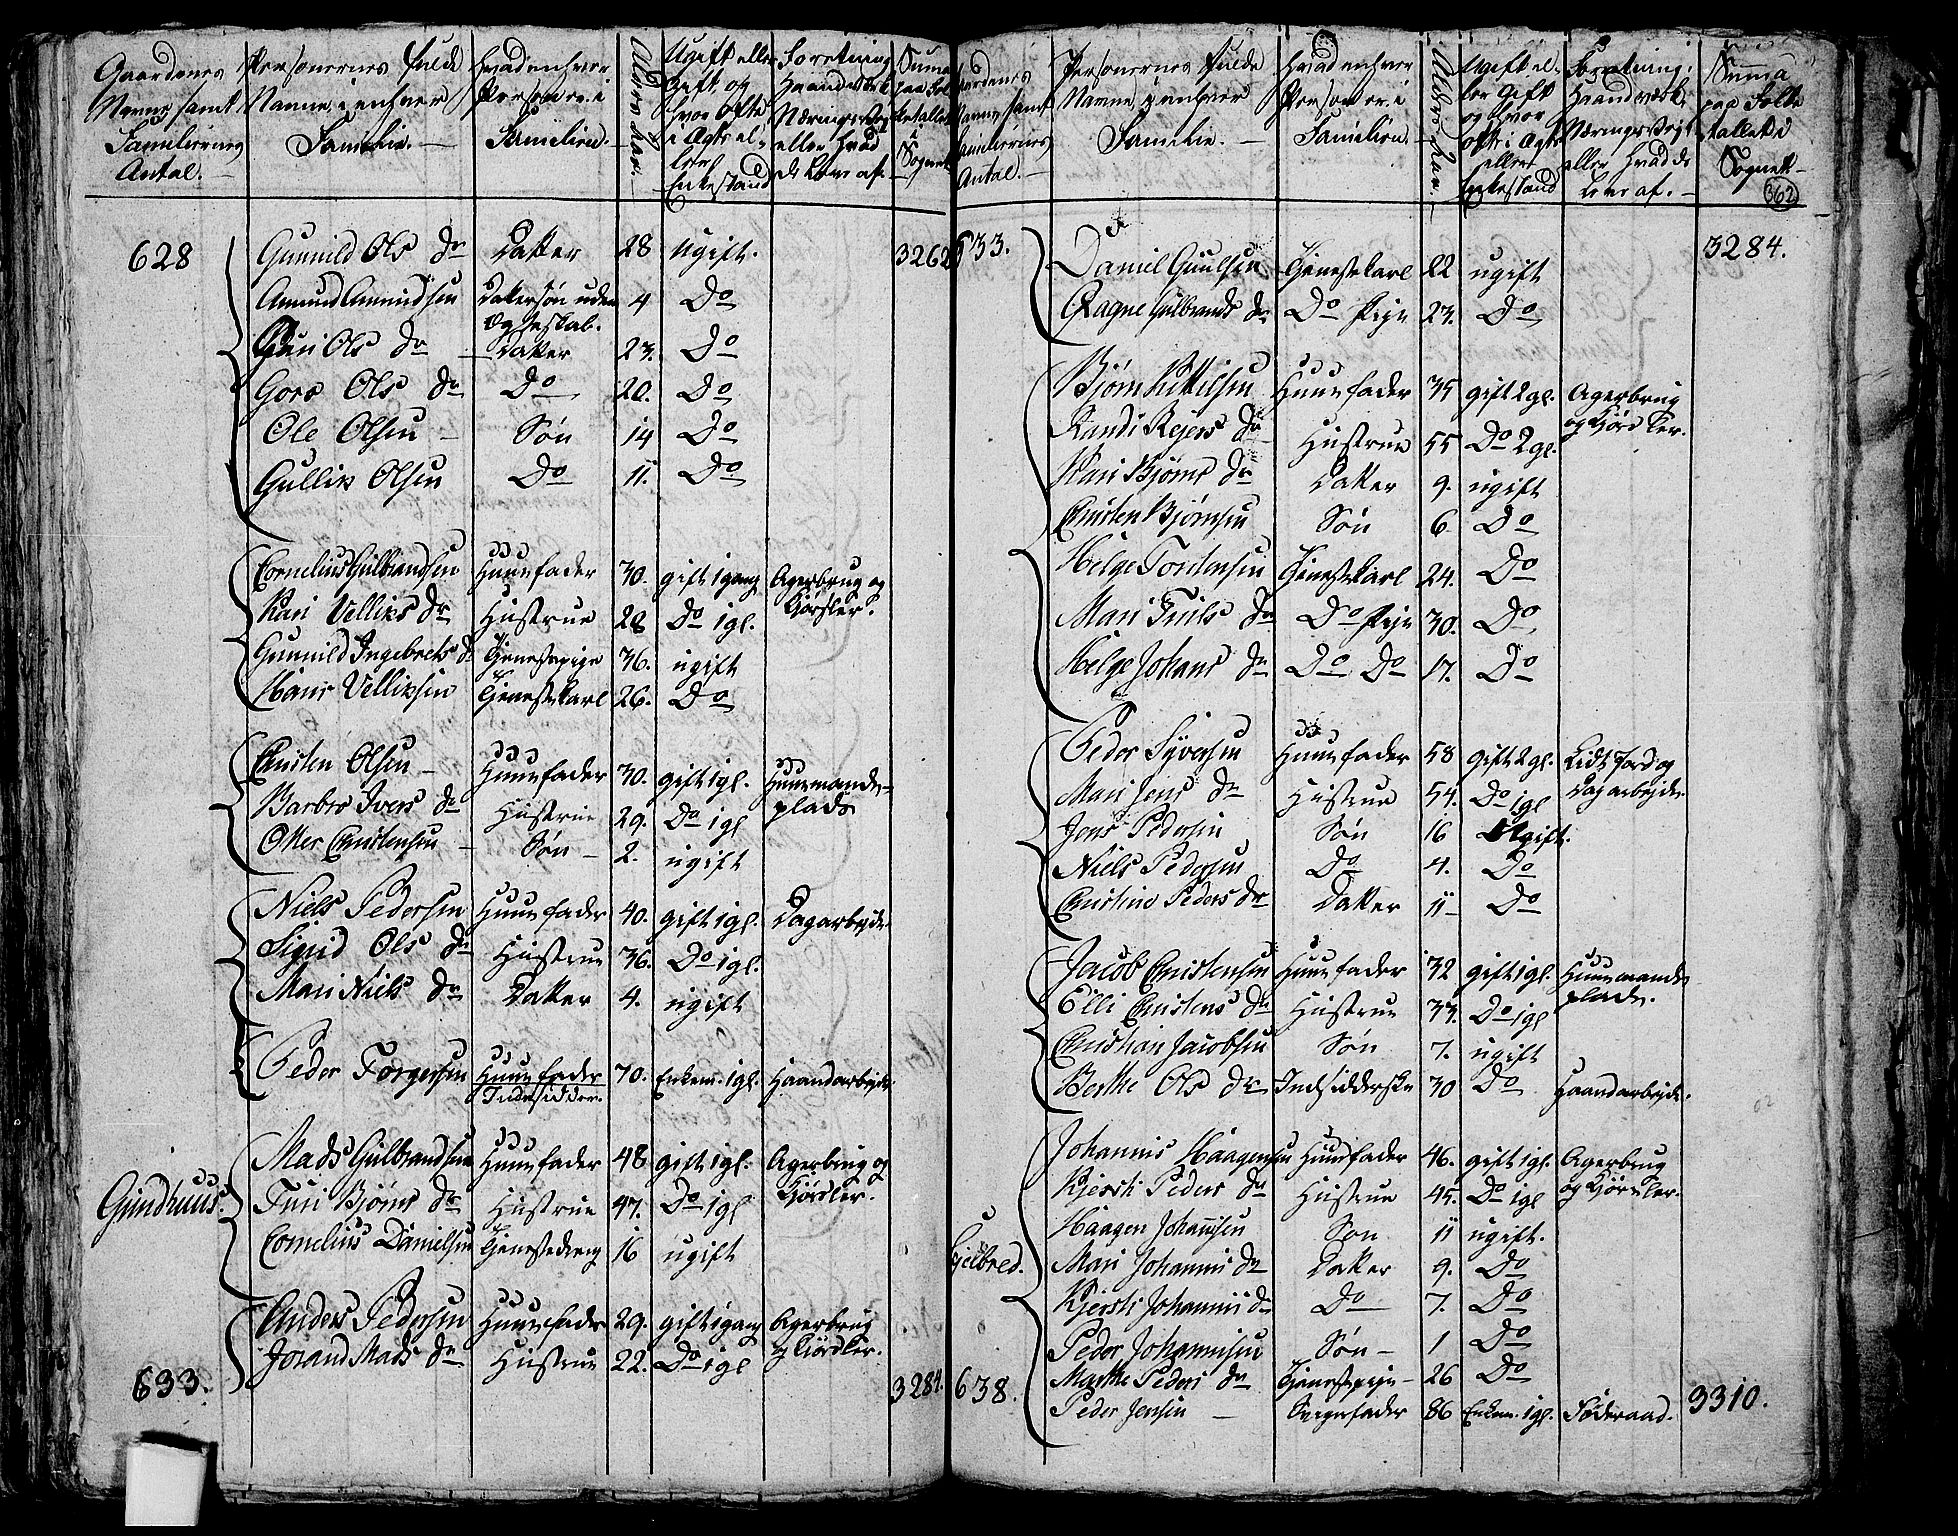 Gaardenes Navne samt Familiernes Antal. | Personernes fulde Navne i enhver Familie. | Hvad enhver Person er i Familien. | Alders Aar. | Ugift eller Gift, og hvor ofte i Ægte eller Enkestand | Haandværk Næringsvei eller hvad de lever af. | Suma paa Folketallet i Sognet
628 Gunnild Ols Dr Datter 28 ugift. 3262
Amund Amundsen Dattersøn uden Ægteskab. 4 Do
Guri Ols Dr Datter 23. Do
Goro Ols Dr Do 20. Do
Ole Olsen Søn 14 Do
Gullik Olsen Do 11. Do
Cornelius Gulbrandsen Huusfader 30. gift 1 gang Agerbrug og Kjørsler.
Kari Velliks Dr Hustrue 28 Do 1 gl.
Gunnild Ingebrets Dr Tjenestepige 36. ugift
Hans Velliksen Tjenestekarl 26. Do
Christen Olsen Huusfader 30. gift 1 gl. Huusmands-plads
Barbro Ivers Dr Hustrue 29. Do 1 gl
Otter Christensen Søn 2. ugift
Niels Pedersen Huusfader 40. gift 1 gl. Dagarbejde.
Sigrid Ols Dr Hustrue 36. Do 1 gl.
Mari Niels Dr Datter 4. ugift
Peder Torgersen Huusfader Indsidder. 70. Enkem. 1 gl. Haandarbejde
Mads Gulbrandsen Huusfader 48 gift 1 gl. Agerbrug og Kjørsler.
Gundhuus. Turi Bjørns Dr Hustrue 47. Do 1 gl
Cornelius Danielsen Tjenestedreng 16 ugift
Anders Pedersen Huusfader 29. gift 1 gang Agerbrug og Kiørsler.
633. Jorand Mads Dr Hustrue 22. Do 1 gl 3284.
Gaardenes Navne samt Familiernes Antal. | Personernes fulde Navne i enhver Familie. | Hvad enhver Person er i Familien. | Alders Aar. | Ugift eller Gift og hvor ofte i Ægte eller Enkestand | Haandværk Næringsvei eller hvad de lever af. | Summa paa Folketallet i Sognet
362
633. Daniel Guulsen Tjenestekarl 22 ugift 3284.
Ragne Gulbrands Dr Do Pige 23. Do
Bjørn Kittilsen Huusfader 35 gift 2 gl. Agerbrug og Kjørsler.
Randi Rejers Dr Hustrue 55 Do 2 gl.
Kari Bjørns Dr Datter 9. ugift
Christen Bjørnsen Søn 6 Do
Helge Torstensen Tjenestekarl 24. Do
Mari Truls Dr Do Pige 30. Do
Helge Johans Dr Do Do 17. Do
Peder Syversen Huusfader 58 gift 2 gl. Lidt Jord og Dagarbejde.
Mari Jens Dr Hustrue 54. Do 1 gl
Jens Pedersen Søn 16 Ugift.
Niels Pedersen Do 4. Do
Christine Peders Dr Datter 11 Do
Jacob Christensen Huusfader 32 gift 1 gl. Huusmands plads.
Elli Christens Dr Hustrue 33. Do 1 gl
Christian Jacobsen Søn 7. ugift
Berthe Ols Dr Indsidderske 30 Do Haandarbejde.
Johannis Haagensen Huusfader 46. gift 1 gl. Agerbrug og Kjørsler.
Kjersti Peders Dr Hustrue 45. Do 1 gl
Haagen Johannisen Søn 11 ugift.
Mari Johannis Dr Datter 9. Do
Kjersti Johannis Dr Do 7. Do
Peder Johannisen Søn 1 Do
638. Marthe Peders Dr Tjenestepige 26 Do
Peder Jensen Svigerfader 86 Enkem. 1 gl. Føderaad. 3310.